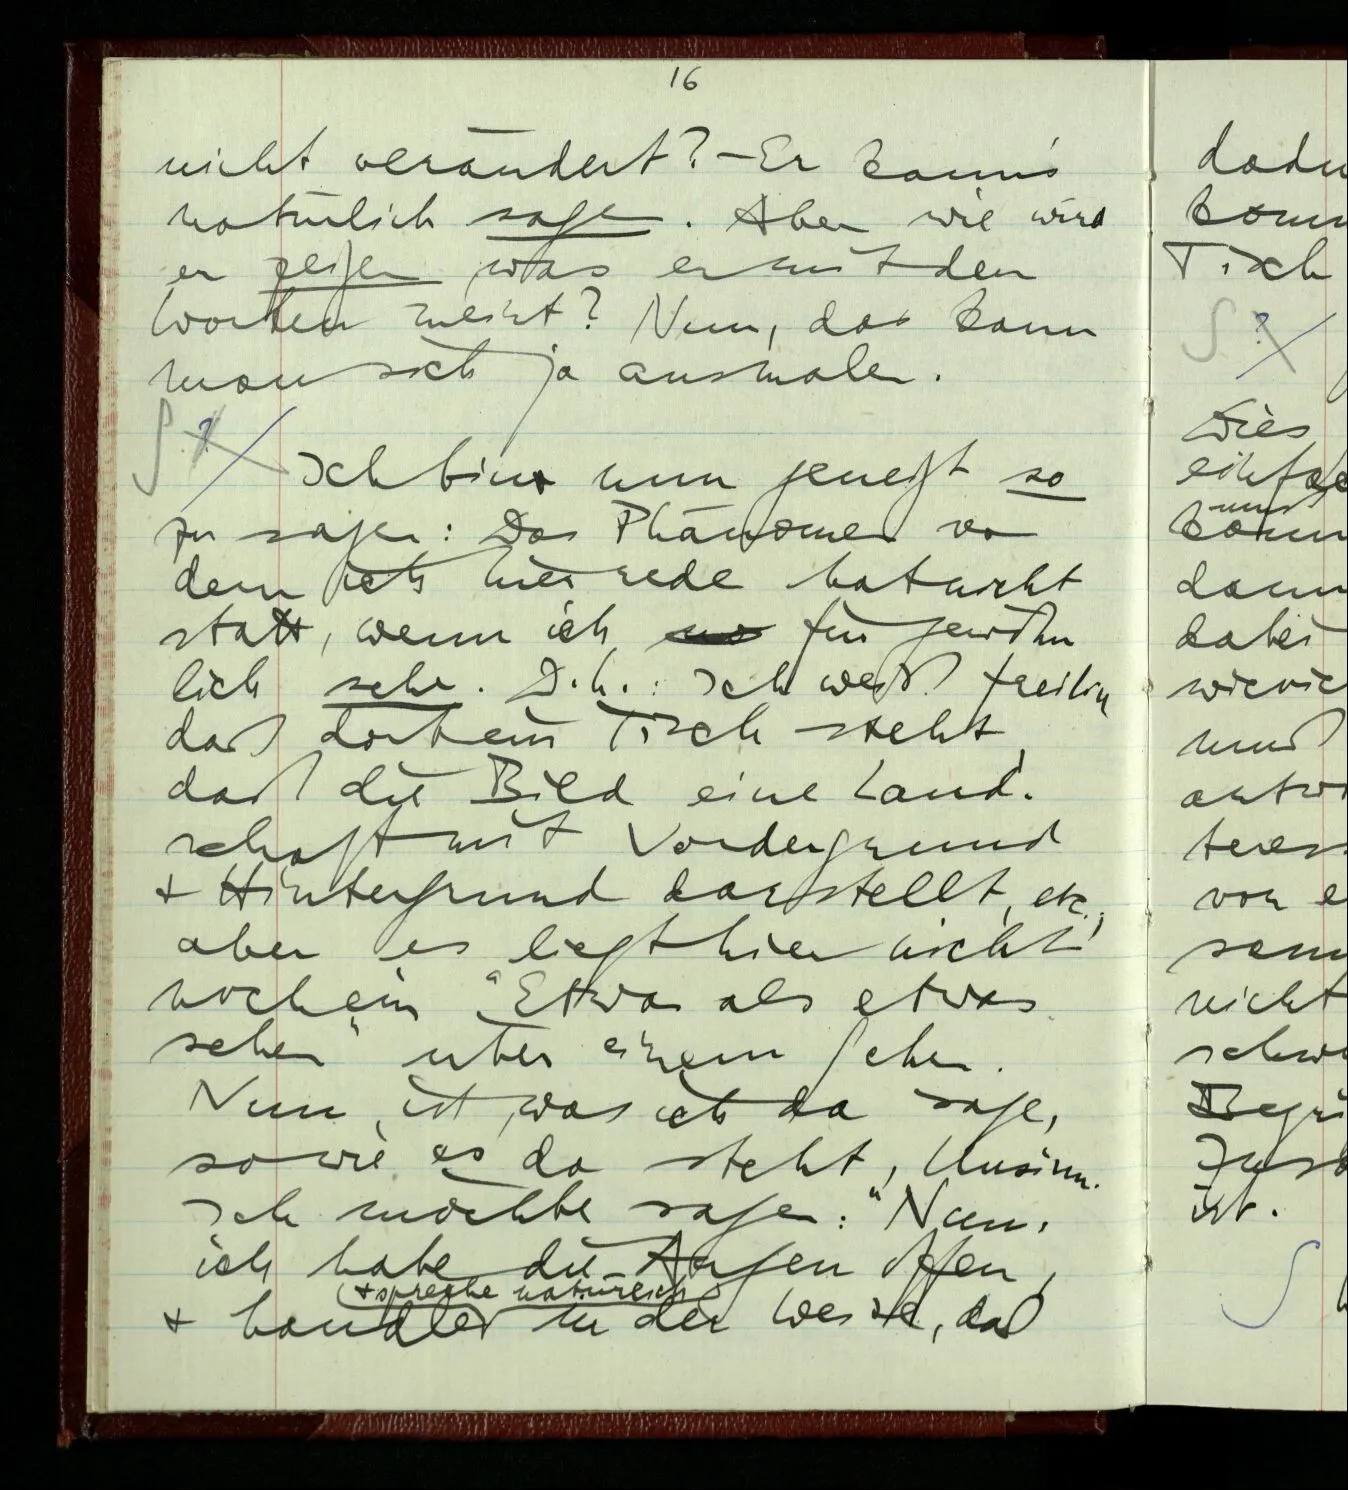 16
nicht verändert? – Er kann's
natürlich sagen. Aber wie wird
er zeigen was er mit den
Worten meint? Nun, das kann
man sich ja ausmalen.
∫ ? /
Ich bin nun geneigt so
zu sagen: Das Phänomen von
dem ich hier rede hat nicht
statt, wenn ich für gewöhn
lich sehe. D.h.: Ich weiß freilich
daß dort ein Tisch steht,
daß die Bild eine Land-
schaft mit Vordergrund
+ Hintergrund darstellt, etc.,
aber es liegt hier nicht
noch ein “Etwas als etwas
sehen” über einem Sehen.
Nun ist, was ich da sage,
so wie es da steht, Unsinn.
Ich möchte sagen: “Nun,
ich habe die Augen offen,
(+ spreche natürlich)
+ handle in der Weise, daß
dadu
komm
Tisch
∫ ? /
Dies
einfac
uns
kann
dann
dabei
wievie
muß
antwo
teress
von e
son
nicht
schwi
Begri
Zust
ist.
∫